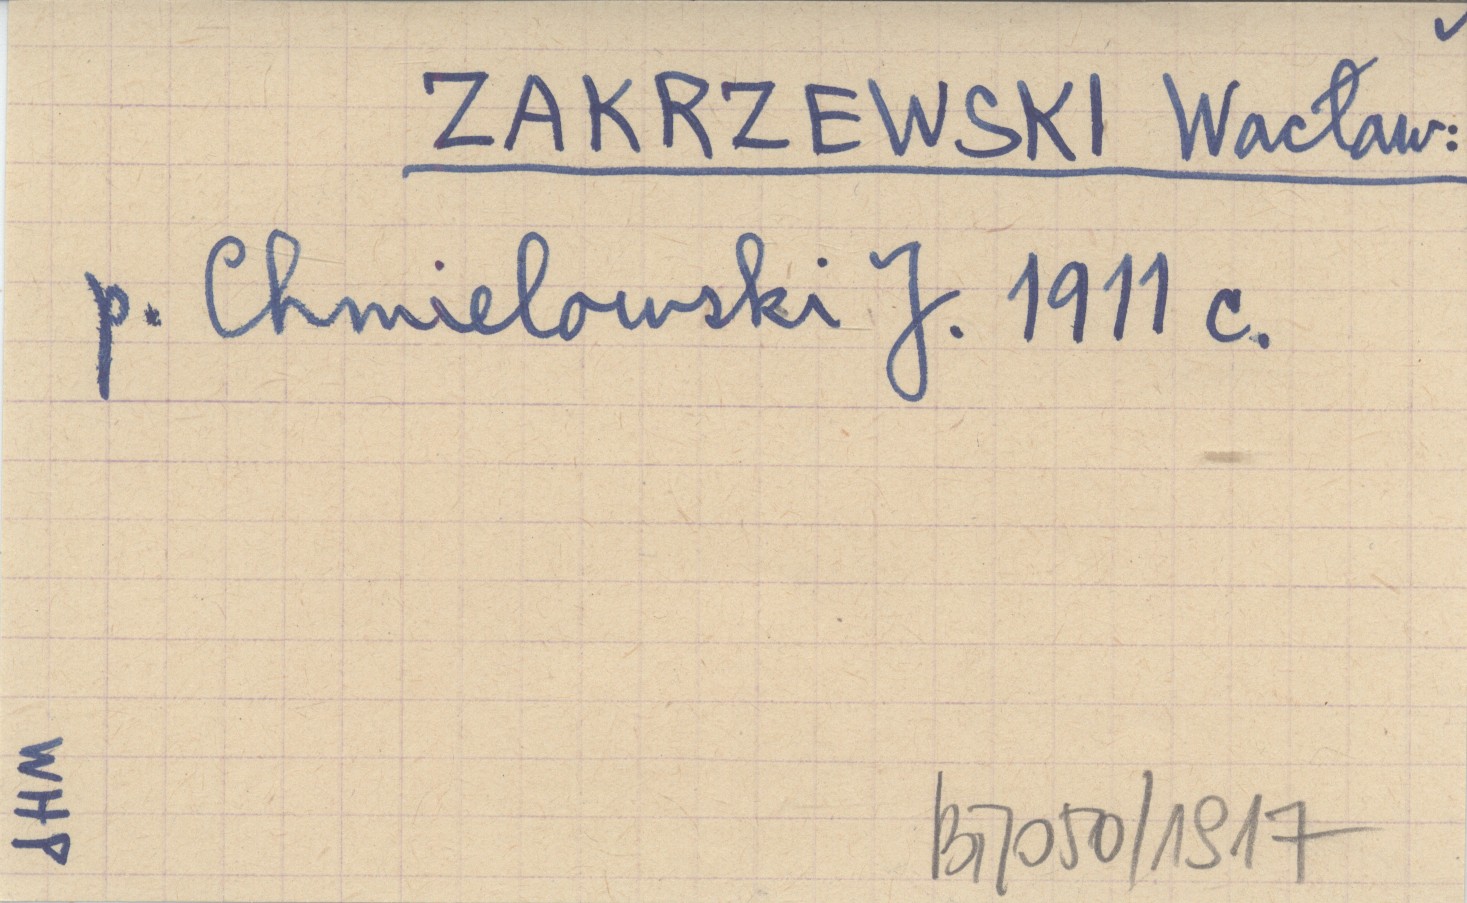 ZAKRZEWSKI Wacław:
p. Chmielowski J. 1911 c.
WHP
B7050/1917